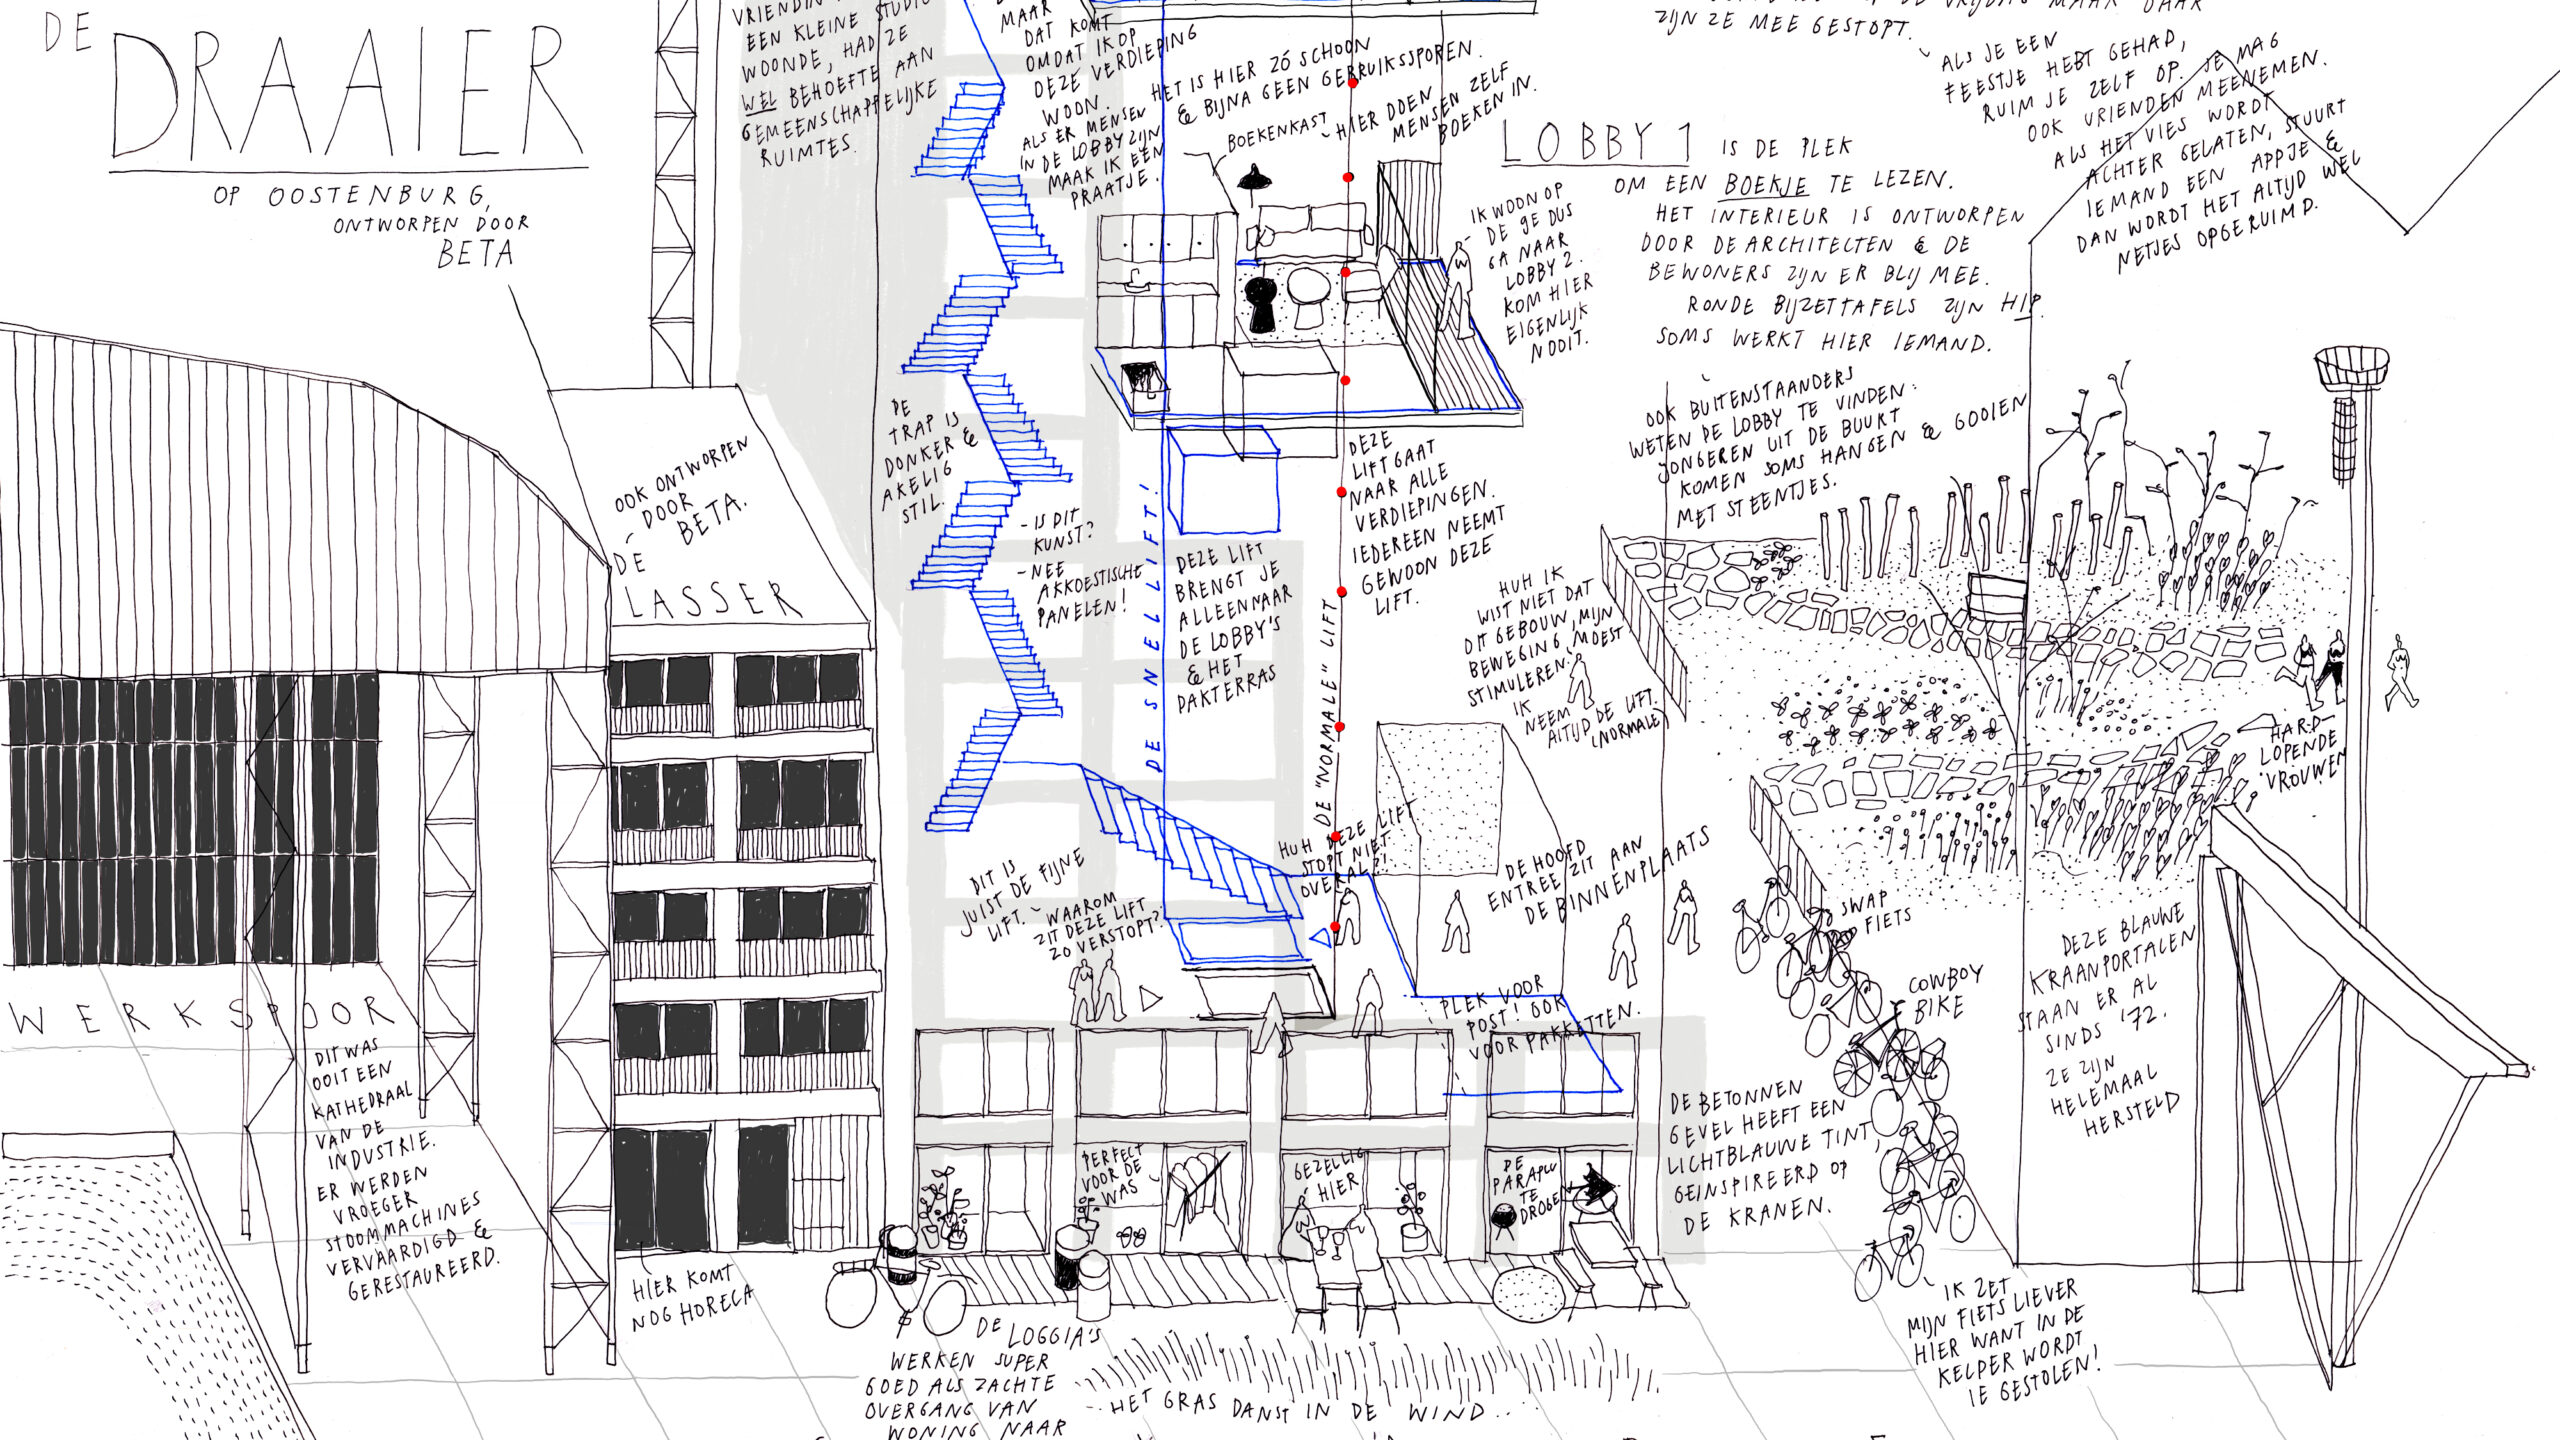 DE
DRAAIER
OP OOSTENBURG,
ONTWORPEN DOOR
BETA
VRIENDIN
EEN KLEINE STUDIO
WOONDE, HAD ZE
WEL BEHOEFTE AAN
GEMEENSCHAPPELIJKE
RUIMTES.
MAAR
DAT KOMT
OMDAT IK OP
DEZE VERDIEPING
WOON.
ALS ER MENSEN
IN DE LOBBY ZIJN
MAAK IK EEN
PRAATJE.
HET IS HIER ZÓ SCHOON
& BIJNA GEEN GEBRUIKSSPOREN.
BOEKENKAST
HIER DOEN
MENSEN ZELF
BOEKEN IN.
LOBBY 1 IS DE PLEK
OM EEN BOEKJE TE LEZEN.
HET INTERIEUR IS ONTWORPEN
DOOR DE ARCHITECTEN & DE
BEWONERS ZIJN ER BLIJ MEE.
RONDE BIJZETTAFELS ZIJN HIP.
SOMS WERKT HIER IEMAND.
IK WOON OP
DE 9E DUS
GA NAAR
LOBBY 2.
KOM HIER
EIGENLIJK
NOOIT.
ZIJN ZE MEE GESTOPT.
ALS JE EEN
FEESTJE HEBT GEHAD,
RUIM JE ZELF OP. JE MAG
OOK VRIENDEN MEENEMEN.
ALS HET VIES WORDT
ACHTER GELATEN, STUURT
IEMAND EEN APPJE &
DAN WORDT HET ALTIJD WEL
NETJES OPGERUIMD.
OOK BUITENSTAANDERS
WETEN DE LOBBY TE VINDEN:
JONGEREN UIT DE BUURT
KOMEN SOMS HANGEN & GOOIEN
MET STEENTJES.
DE
TRAP IS
DONKER &
AKELIG
STIL.
- IS DIT
KUNST?
- NEE
AKKOESTISCHE
PANELEN!
DE SNELLIFT!
DEZE LIFT
BRENGT JE
ALLEEN NAAR
DE LOBBY'S
& HET
DAKTERRAS
DEZE
LIFT GAAT
NAAR ALLE
VERDIEPINGEN.
IEDEREEN NEEMT
GEWOON DEZE
LIFT.
DE "NORMALE" LIFT
HUH IK
WIST NIET DAT
DIT GEBOUW, MIJN
BEWEGING, MOEST
STIMULEREN.
IK
NEEM
ALTIJD DE LIFT.
(NORMALE)
OOK ONTWORPEN
DOOR
BETA.
DE
LASSER
WERKSPOOR
DIT WAS
OOIT EEN
KATHEDRAAL
VAN DE
INDUSTRIE.
ER WERDEN
VROEGER
STOOMMACHINES
VERVAARDIGD &
GERESTAUREERD.
HIER KOMT
NOG HORECA
DIT IS
JUIST DE FIJNE
LIFT.
WAAROM
ZIT DEZE LIFT
ZO VERSTOPT?
HUH DEZE LIFT
STOPT NIET
OVERAL?!
DE HOOFD
ENTREE ZIT AAN
DE BINNENPLAATS
PLEK VOOR
POST! OOK
VOOR PAKKETTEN.
SWAP
FIETS
COWBOY
BIKE
HARD-
LOPENDE
VROUWEN
DEZE BLAUWE
KRAANPORTALEN
STAAN ER AL
SINDS '72.
ZE ZIJN
HELEMAAL
HERSTELD
DE BETONNEN
GEVEL HEEFT EEN
LICHTBLAUWE TINT,
GEINSPIREERD OP
DE KRANEN.
IK ZET
MIJN FIETS LIEVER
HIER WANT IN DE
KELDER WORDT
IE GESTOLEN!
PERFECT
VOOR DE
WAS
GEZELLIG
HIER
DE
PARAPLU
TE
DROGEN
DE LOGGIA'S
WERKEN SUPER
GOED ALS ZACHTE
OVERGANG VAN
WONING NAAR
HET GRAS DANST IN DE WIND...